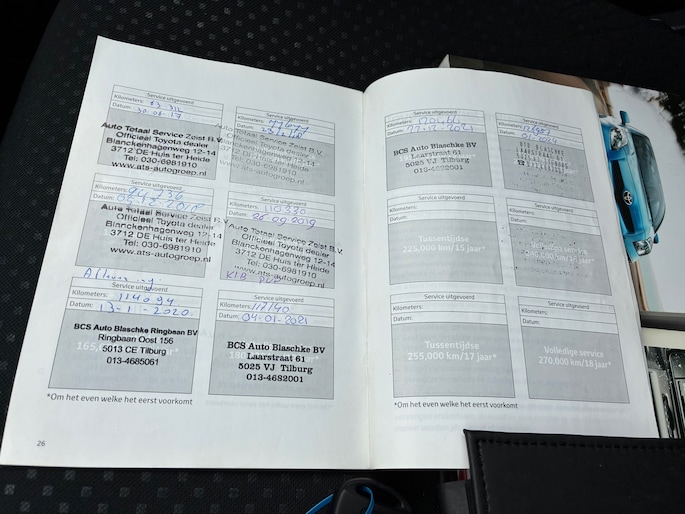 Service uitgevoerd
Kilometers:
Datum: 30-06-17
Auto Totaal Service Zeist B.V.
Officieel Toyota dealer
Blanckenhagenweg 12-14
3712 DE Huis ter Heide
Tel: 030-6981910
www.ats-autogroep.nl
Service uitgevoerd
Kilometers:
Datum:
Auto Totaal Service Zeist B.V.
Officieel Toyota dealer
Blanckenhagenweg 12-14
3712 DE Huis ter Heide
Tel: 030-6981910
www.ats-autogroep.nl
Service uitgevoerd
Kilometers:
Datum:
Auto Totaal Service Zeist B.V.
Officieel Toyota dealer
Blanckenhagenweg 12-14
3712 DE Huis ter Heide
Tel: 030-6981910
www.ats-autogroep.nl
Service uitgevoerd
Kilometers: 110330
Datum: 26-09-2019
Auto Totaal Service Zeist B.V.
Officieel Toyota dealer
Blanckenhagenweg 12-14
3712 DE Huis ter Heide
Tel: 030-6981910
www.ats-autogroep.nl
Service uitgevoerd
Kilometers: 114094
Datum: 13-11-2020
BCS Auto Blaschke Ringbaan BV
Ringbaan Oost 156
5013 CE Tilburg
013-4685061
Service uitgevoerd
Kilometers: 117140
Datum: 04-01-2021
BCS Auto Blaschke BV
Laarstraat 61
5025 VJ Tilburg
013-4682001
*Om het even welke het eerst voorkomt
26
Service uitgevoerd
Kilometers:
Datum:
BCS Auto Blaschke BV
Laarstraat 61
5025 VJ Tilburg
013-4682001
Service uitgevoerd
Kilometers:
Datum:
Service uitgevoerd
Kilometers:
Datum:
Tussentijdse
225,000 km/15 jaar*
Service uitgevoerd
Kilometers:
Datum:
Volledige service
Service uitgevoerd
Kilometers:
Datum:
Tussentijdse
255,000 km/17 jaar*
Service uitgevoerd
Kilometers:
Datum:
Volledige service
270,000 km/18 jaar*
*Om het even welke het eerst voorkomt